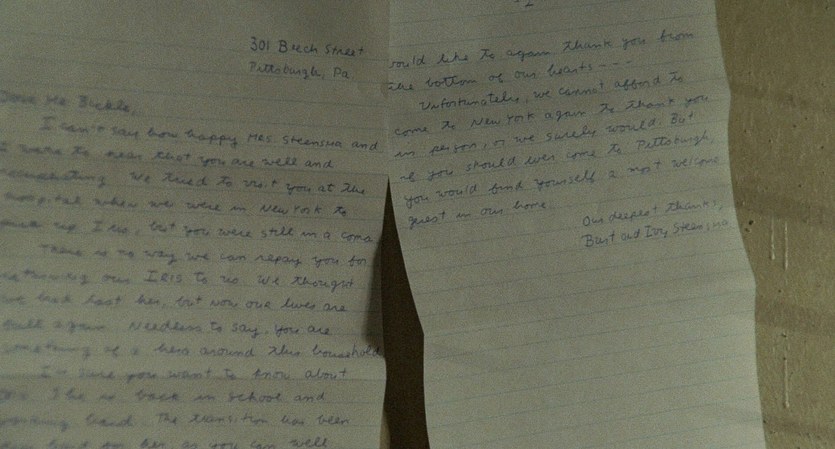 301 Beech Street
Pittsburgh, Pa
Dear Mr Bickle,
I can't say how happy Mrs. Steensma and
I were to hear that you are well and
recuperating. We tried to visit you at the
hospital when we were in New York to
pick up Iris, but you were still in a coma
There is no way we can repay you for
returning our IRIS to us. We thought
we had lost her, but now our lives are
full again. Needless to say, you are
something of a hero around this household
I'm sure you want to know about
Iris. She is back in school and
working hard. The transition has been
very hard on her, as you can well
-2
would like to again thank you from
the bottom of our hearts - - -
Unfortunately, we cannot afford to
come to New York again to thank you
in person, or we surely would. But
if you should ever come to Pittsburgh,
you would find yourself a most welcome
guest in our home.
Our deepest thanks,
Burt and Ivy Steensma